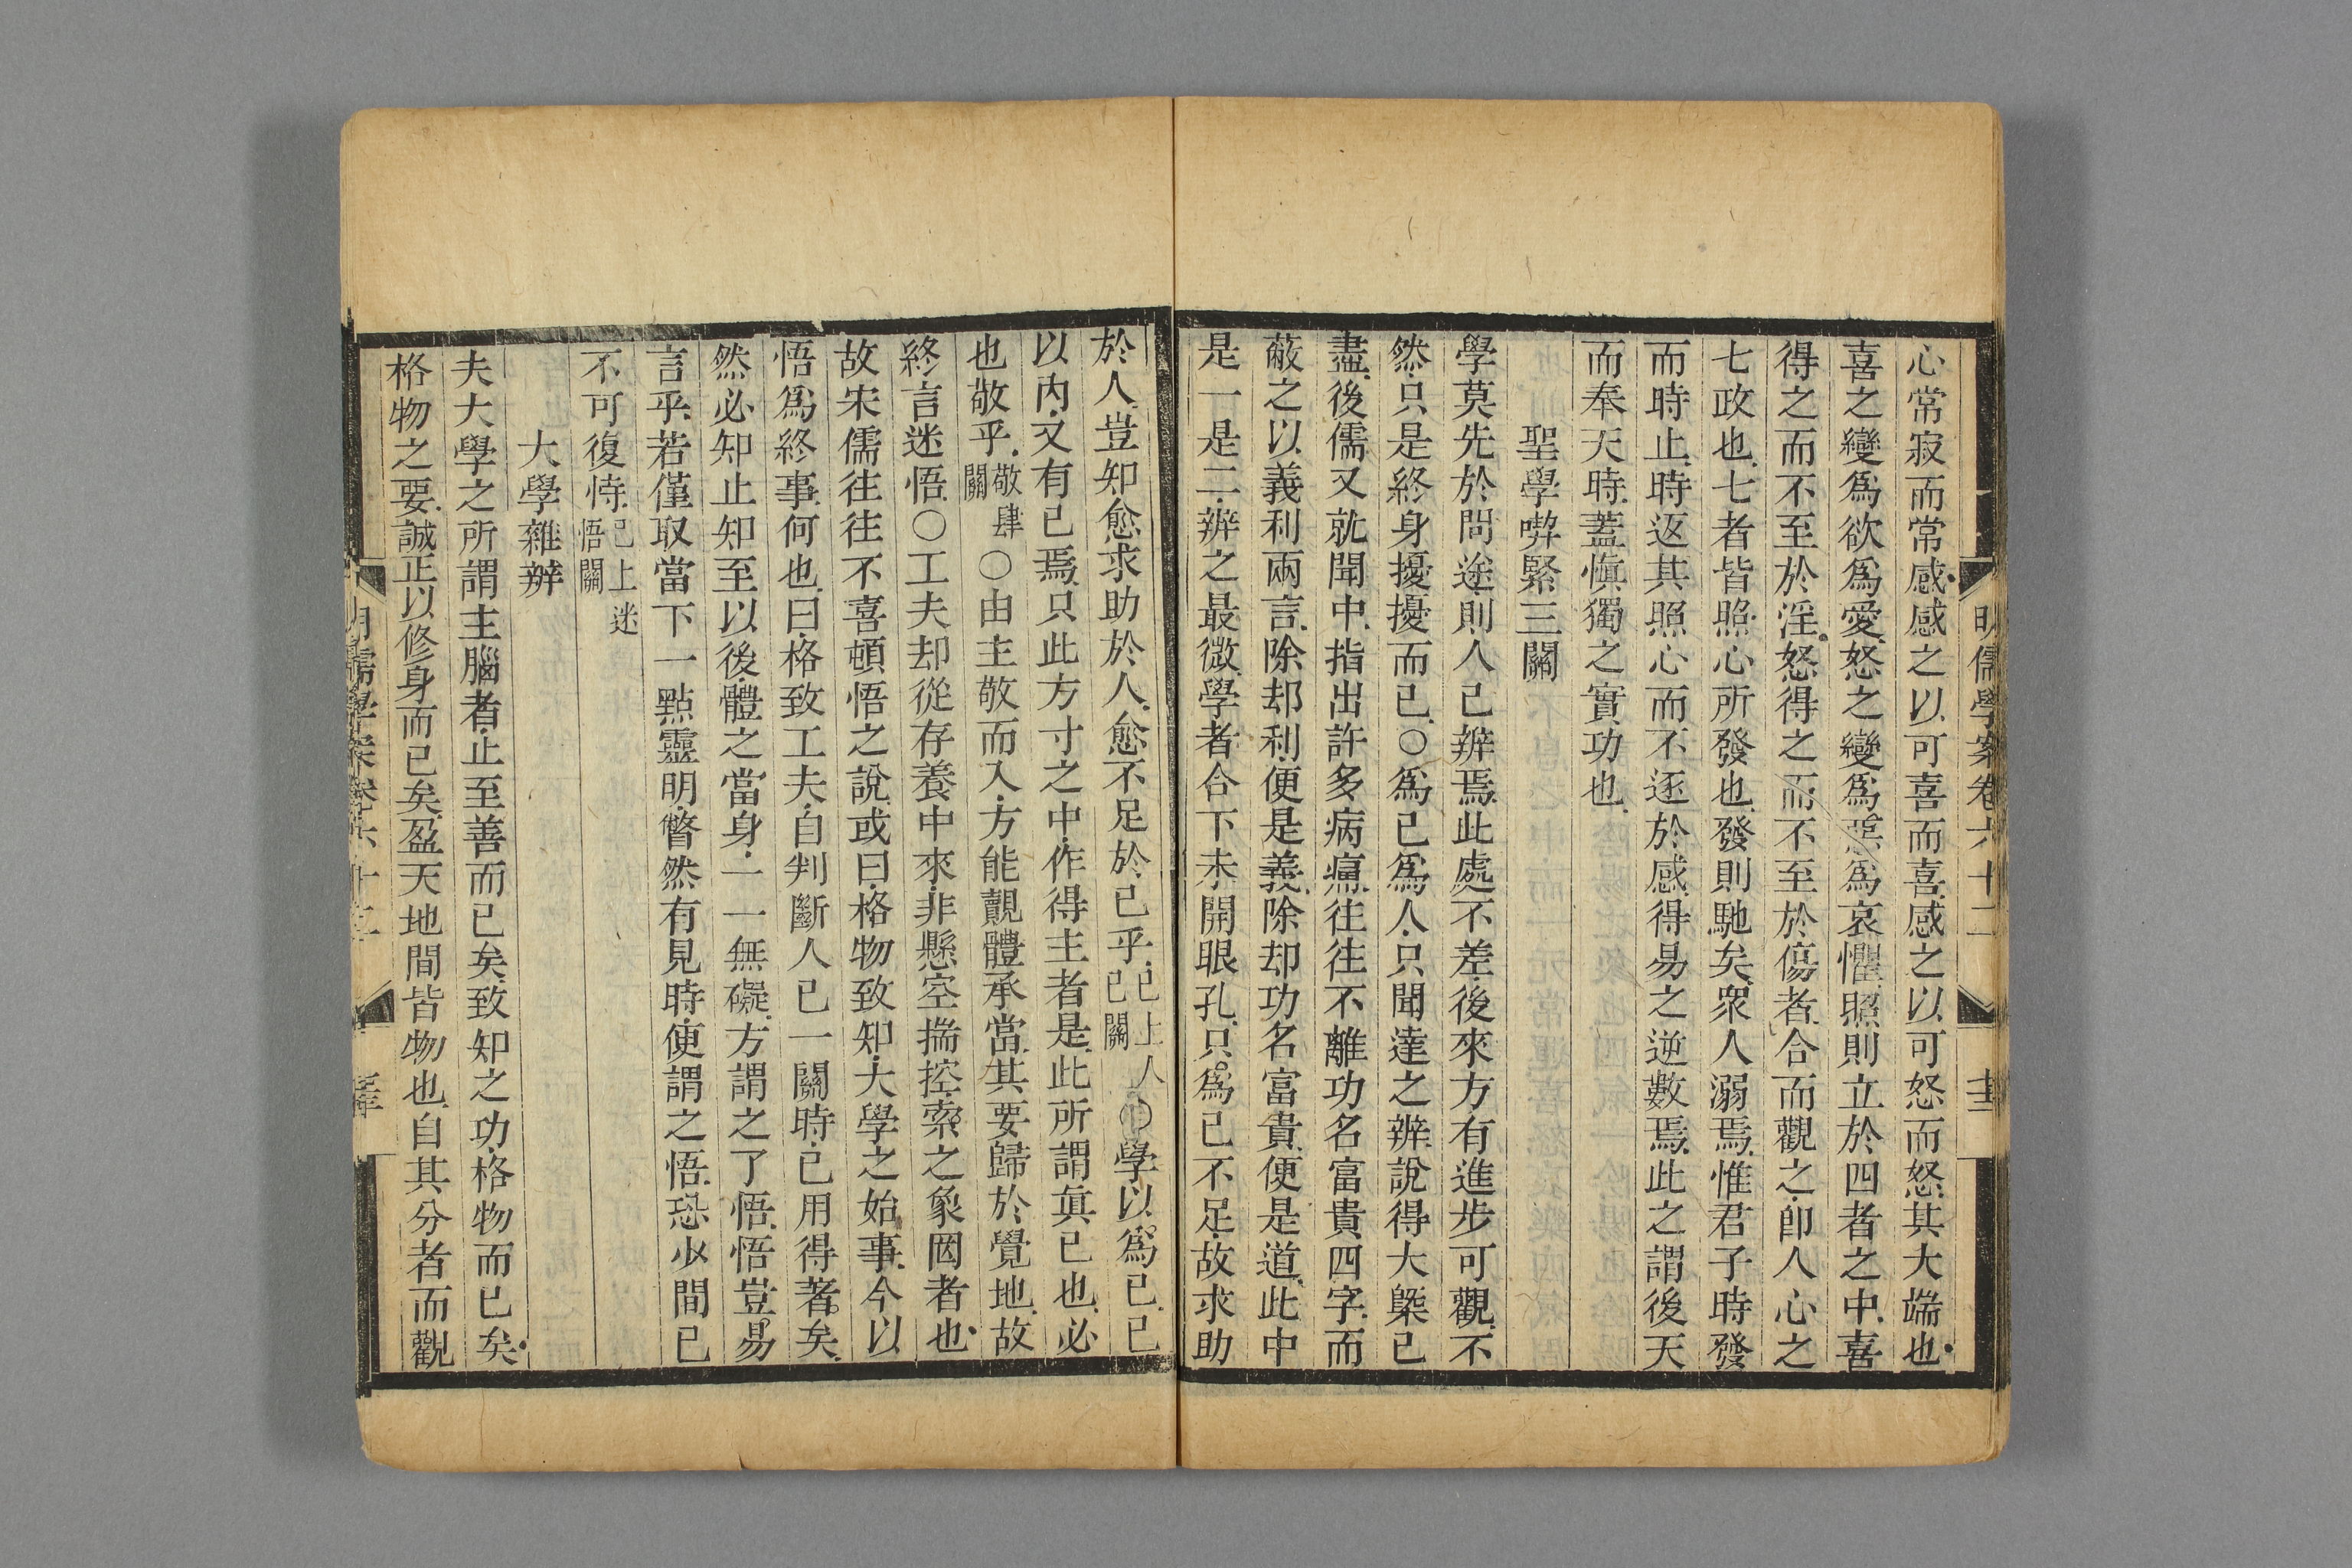 明儒學案卷六十二
心常寂而常感感之以可喜而喜感之以可怒而怒其大端也
喜之變爲欲爲愛怒之變爲惡爲哀懼照則立於四者之中喜
得之而不至於淫怒得之而不至於傷者合而觀之卽人心之
七政也七者皆照心所發也發則馳矣衆人溺焉惟君子時發
而時止時返其照心而不逐於感得易之逆數焉此之謂後天
而奉天時蓋愼獨之實功也
聖學喫緊三關
學莫先於問途則人己辨焉此處不差後來方有進步可觀不
然只是終身擾擾而已○爲己爲人只聞達之辨說得大槩已
盡後儒又就聞中指出許多病痛往往不離功名富貴四字而
蔽之以義利兩言除却利便是義除却功名富貴便是道此中
是一是二辨之最微學者合下未開眼孔只爲己不足故求助
於人豈知愈求助於人愈不足於己乎已上人己關○學以爲己己
以內又有己焉只此方寸之中作得主者是此所謂眞己也必
也敬乎敬肆關○由主敬而入方能覿體承當其要歸於覺地故
終言迷悟○工夫却從存養中來非懸空揣控索之象罔者也
故宋儒往往不喜頓悟之說或曰格物致知大學之始事今以
悟爲終事何也曰格致工夫自判斷人己一關時已用得著矣
然必知止知至以後體之當身一一無礙方謂之了悟悟豈易
言乎若僅取當下一點靈明瞥然有見時便謂之悟恐少間已
不可復恃已上迷悟關
大學雜辨
夫大學之所謂主腦者止至善而已矣致知之功格物而已矣
格物之要誠正以修身而已矣盈天地間皆物也自其分者而觀
明儒學案卷六十二